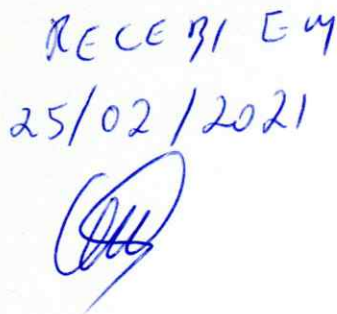 RECEBI EM
25/02/2021